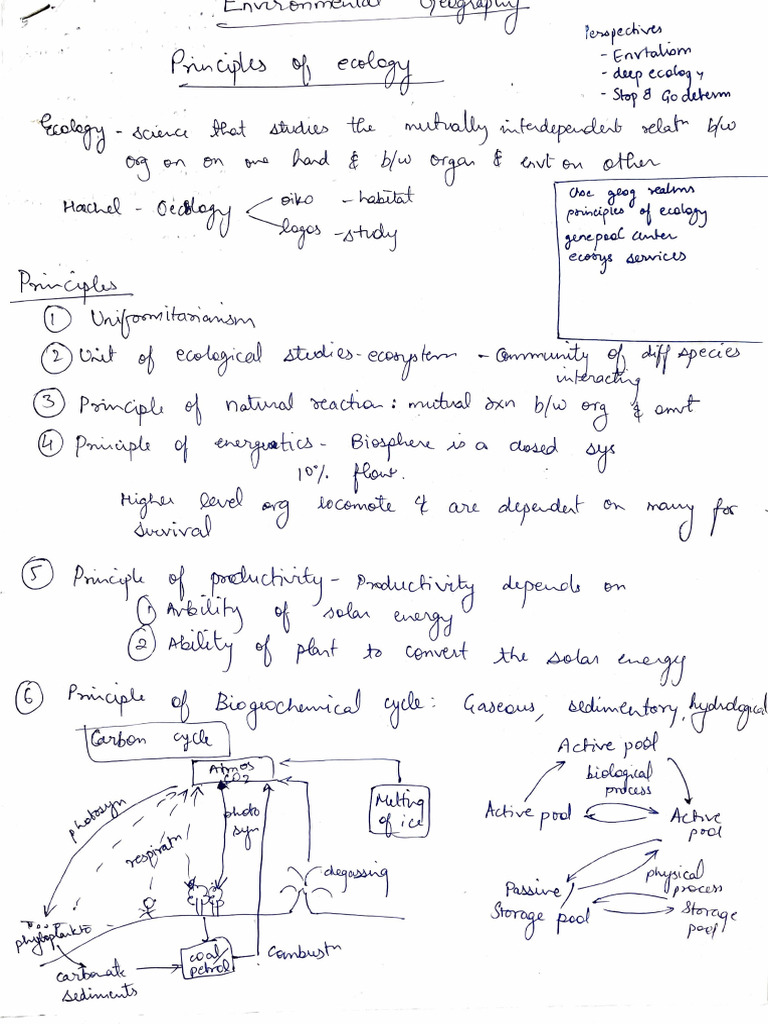 Environmental Geography
Perspectives
- Envtalism
- deep ecology
- Stop & Go determ
Principles of ecology
Ecology - science that studies the mutually interdependent relatn b/w
org on on one hand & b/w organ & envt on other
Hachel - Oecology
oiko - habitat
logos - study
Choc geog realms
principles of ecology
genepool center
ecosys services
Principles
① Uniformitarianism
② Unit of ecological studies - ecosystem - Community of diff species
interacting
③ Principle of natural reaction: mutual rxn b/w org & envt
④ Principle of energeatics - Biosphere is a closed sys
10% flow.
Higher level org locomote & are dependent on many for
survival
⑤ Principle of productivity - Productivity depends on
① Avbility of solar energy
② Ability of plant to convert the solar energy
⑥ Principle of Biogeochemical cycle: Gaseous, sedimentory, hydrological
Carbon cycle
Atmos
CO2
Melting
of ice
photosyn
respiratn
photo
syn
degassing
phytoplankto
carbonate
sediments
coal/
petrol
Combustn
Active pool
biological
process
Active pool
Active
pool
physical
process
Passive
Storage pool
Storage
pool